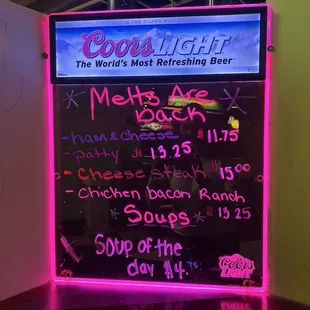 Coors LIGHT
The World's Most Refreshing Beer
Melts Are
back
- ham & cheese $11.75
- patty $13.25
- Cheese steak $15.00
- Chicken bacon Ranch
$13.25
Soups
Soup of the
day $4.75
Coors
LIGHT